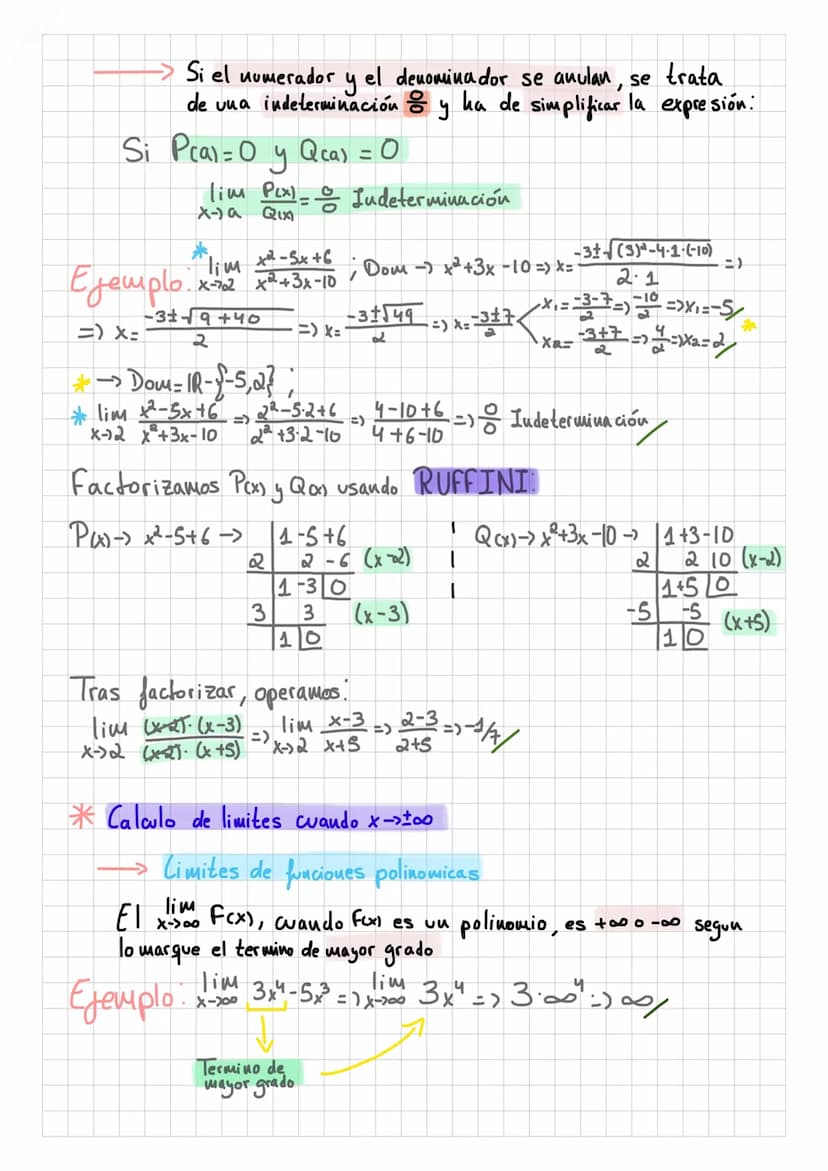 → Si el numerador y el denominador se anulan, se trata
de una indeterminación 0/0 y ha de simplificar la expresión:
Si P(a)=0 y Q(a)=0
lim x→a P(x)/Q(x) = 0/0 Indeterminación
Ejemplo: * lim x→2 (x²-5x+6)/(x²+3x-10) ; Dom → x²+3x-10 => x= (-3±√((3)²-4·1·(-10)))/(2·1) =>
=> x= (-3±√(9+40))/2 => x= (-3±√49)/2 => x= (-3±7)/2 < x₁= (-3-7)/2 => -10/2 => x₁=-5
x₂= (-3+7)/2 => 4/2 => x₂=2 *
* → Dom= IR-{-5,2} ;
* lim x→2 (x²-5x+6)/(x²+3x-10) => (2²-5·2+6)/(2²+3·2-10) => (4-10+6)/(4+6-10) => 0/0 Indeterminación
Factorizamos P(x) y Q(x) usando RUFFINI:
P(x)→ x²-5+6 → | 1 -5 +6
2 | 2 -6 (x-2)
| 1 -3 | 0
3 | 3 (x-3)
| 1 | 0
Q(x)→ x²+3x-10 → | 1 +3 -10
2 | 2 10 (x-2)
| 1 +5 | 0
-5 | -5 (x+5)
| 1 | 0
Tras factorizar, operamos:
lim x→2 ((x-2)·(x-3))/((x-2)·(x+5)) => lim x→2 (x-3)/(x+5) => (2-3)/(2+5) => -1/7
* Calculo de limites cuando x→±∞
→ Limites de funciones polinomicas
El lim x→∞ F(x), cuando F(x) es un polinomio, es +∞ o -∞ segun
lo marque el termino de mayor grado
Ejemplo: lim x→∞ 3x⁴-5x³ => lim x→∞ 3x⁴ => 3·∞⁴ => ∞
Termino de
mayor grado